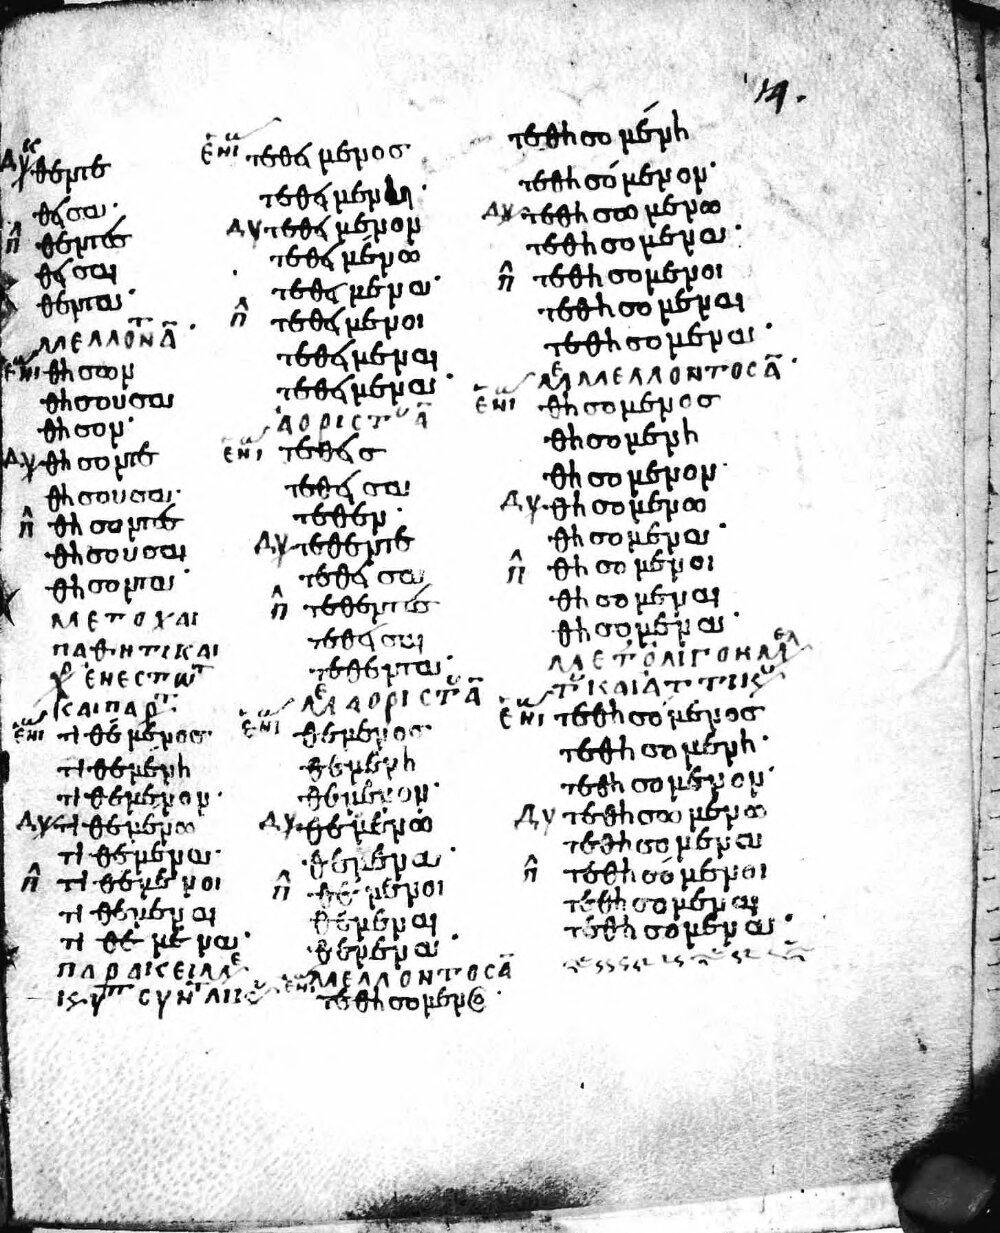 14.
Δυϊκ θέντε
θείσα·
π θέντες
θεῖσαι
θέντα·
ΜΕΛΛΟΝΤ Α·
ἑνι θήσων
θήσουσα
θῆσον·
Δυ θήσοντε
θησούσα·
π θήσοντες
θήσουσαι
θήσοντα·
ΜΕΤΟΧΑΙ
ΠΑΘΗΤΙΚΑΙ
ΕΝΕΣΤΩΤ
ΚΑΙ ΠΑΡΤ
ἑνι τιθέμενος·
τιθεμένη
τιθέμενον·
Δυ τιθεμένω
τιθεμένα·
π τιθέμενοι
τιθέμεναι
τιθέμενα·
ΠΑΡΑΚΕΙΜΕ
ἑνι τεθειμένος
τεθειμένη·
Δυ τεθειμένον
τεθειμένω
τεθειμένα·
π τεθειμένοι
τεθειμέναι
τεθειμένα·
ΑΟΡΙΣΤΟΥ Α
ἑνι τεθείς
τεθεῖσα
τεθέν·
Δυ τεθέντε
τεθείσα
π τεθέντες
τεθεῖσαι
τεθέντα·
ΜΕ ΑΟΡΙΣΤΟΥ Α
ἑνι θέμενος·
θεμένη
θέμενον·
Δυ θεμένω
θεμένα·
π θέμενοι
θέμεναι
θέμενα·
ΜΕΛΛΟΝΤΟΣ Α
ἑνι τεθησόμενος·
τεθησομένη
τεθησόμενον·
Δυ τεθησομένω
τεθησομένα·
π τεθησόμενοι
τεθησόμεναι
τεθησόμενα·
ΜΕ ΜΕΛΛΟΝΤΟΣ Α·
ἑνι θησόμενος
θησομένη
θησόμενον·
Δυ θησομένω
θησομένα·
π θησόμενοι
θησόμεναι
θησόμενα·
ΜΕΤ ΟΛΙΓΟΝ ΜΕΛ
ΤΟΥ ΚΑΙ ΑΤΤΙΚΟΥ
ἑνι τεθησόμενος
τεθησομένη·
τεθησόμενον·
Δυ τεθησομένω
τεθησομένα
π τεθησόμενοι
τεθησόμεναι
τεθησόμενα·